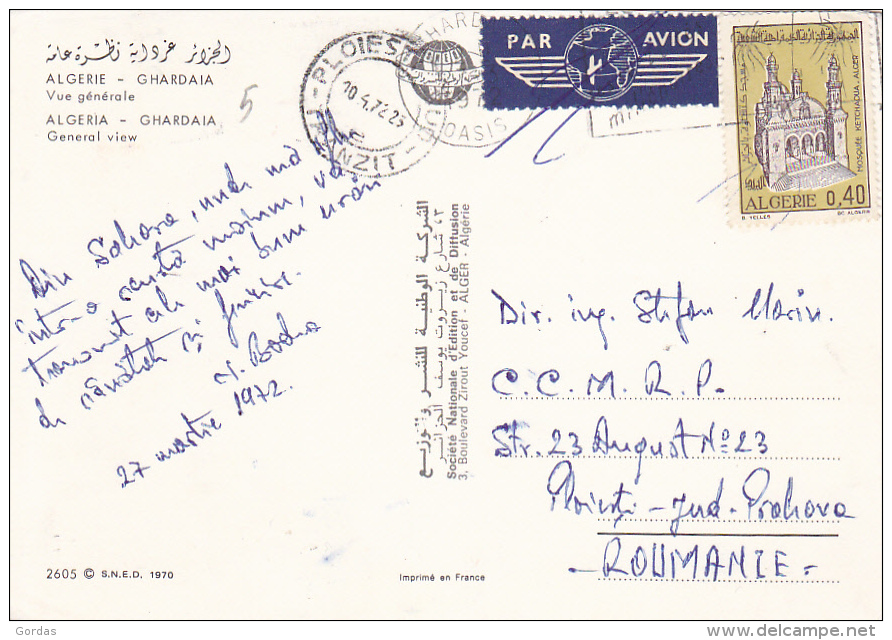 الجزائر غرداية نظرة عامة
ALGERIE - GHARDAIA
Vue générale
ALGERIA - GHARDAIA
General view
5
PLOIESTI
10.4.72
TRANZIT
GHARDAIA
OASIS
PAR AVION
MOSQUÉE KETCHAOUA - ALGER
ALGERIE 0,40
B. YELLES
BC ALGERIE
Din Sahara, unde mă aflu
într-o scurtă misiune, vă
transmit cele mai bune urări
de sănătate și fericire.
27 martie 1972.
الشركة الوطنية للنشر والتوزيع
٣ شارع زيروت يوسف الجزائر
Société Nationale d'Edition et de Diffusion
3, Boulevard Zirout Youcef - ALGER - Algérie
Dir. ing. Stefan Marin.
C.C.M.R.P.
Str. 23 August No 23
Ploiești - Jud. Prahova
- ROUMANIE =
2605 © S.N.E.D. 1970
Imprimé en France
Gordas
delcampe.net